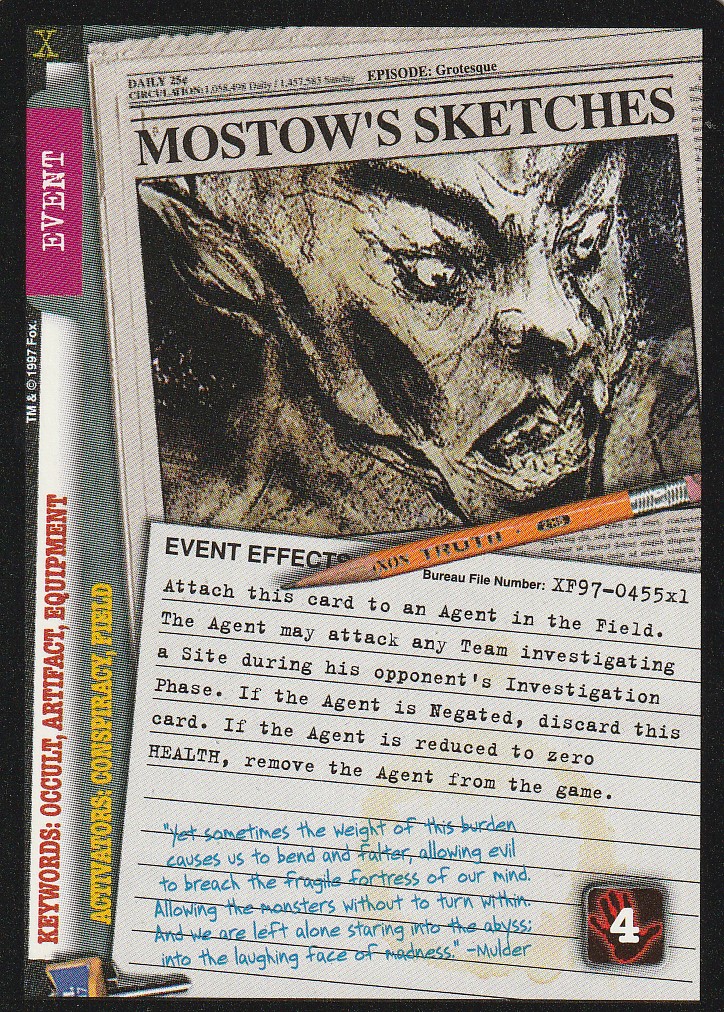 X
EVENT
TM & © 1997 Fox.
KEYWORDS: OCCULT, ARTIFACT, EQUIPMENT
ACTIVATORS: CONSPIRACY, FIELD
DAILY 25¢
CIRCULATION: 1,058,498 Daily / 1,457,583 Sunday
EPISODE: Grotesque
MOSTOW'S SKETCHES
TRUTH
EVENT EFFECTS
Bureau File Number: XF97-0455x1
Attach this card to an Agent in the Field.
The Agent may attack any Team investigating
a Site during his opponent's Investigation
Phase. If the Agent is Negated, discard this
card. If the Agent is reduced to zero
HEALTH, remove the Agent from the game.
"Yet sometimes the weight of this burden
causes us to bend and falter, allowing evil
to breach the fragile fortress of our mind.
Allowing the monsters without to turn within.
And we are left alone staring into the abyss;
into the laughing face of madness." -Mulder
4